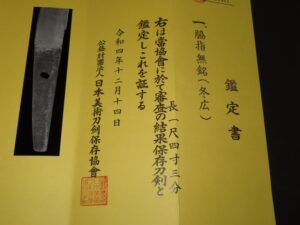 鑑定書
一、脇指無銘(冬広)
長一尺四寸三分
右は當協會に於て審査の結果保存刀剣と
鑑定しこれを証する
令和四年十二月十四日
公益財團法人日本美術刀剣保存協會